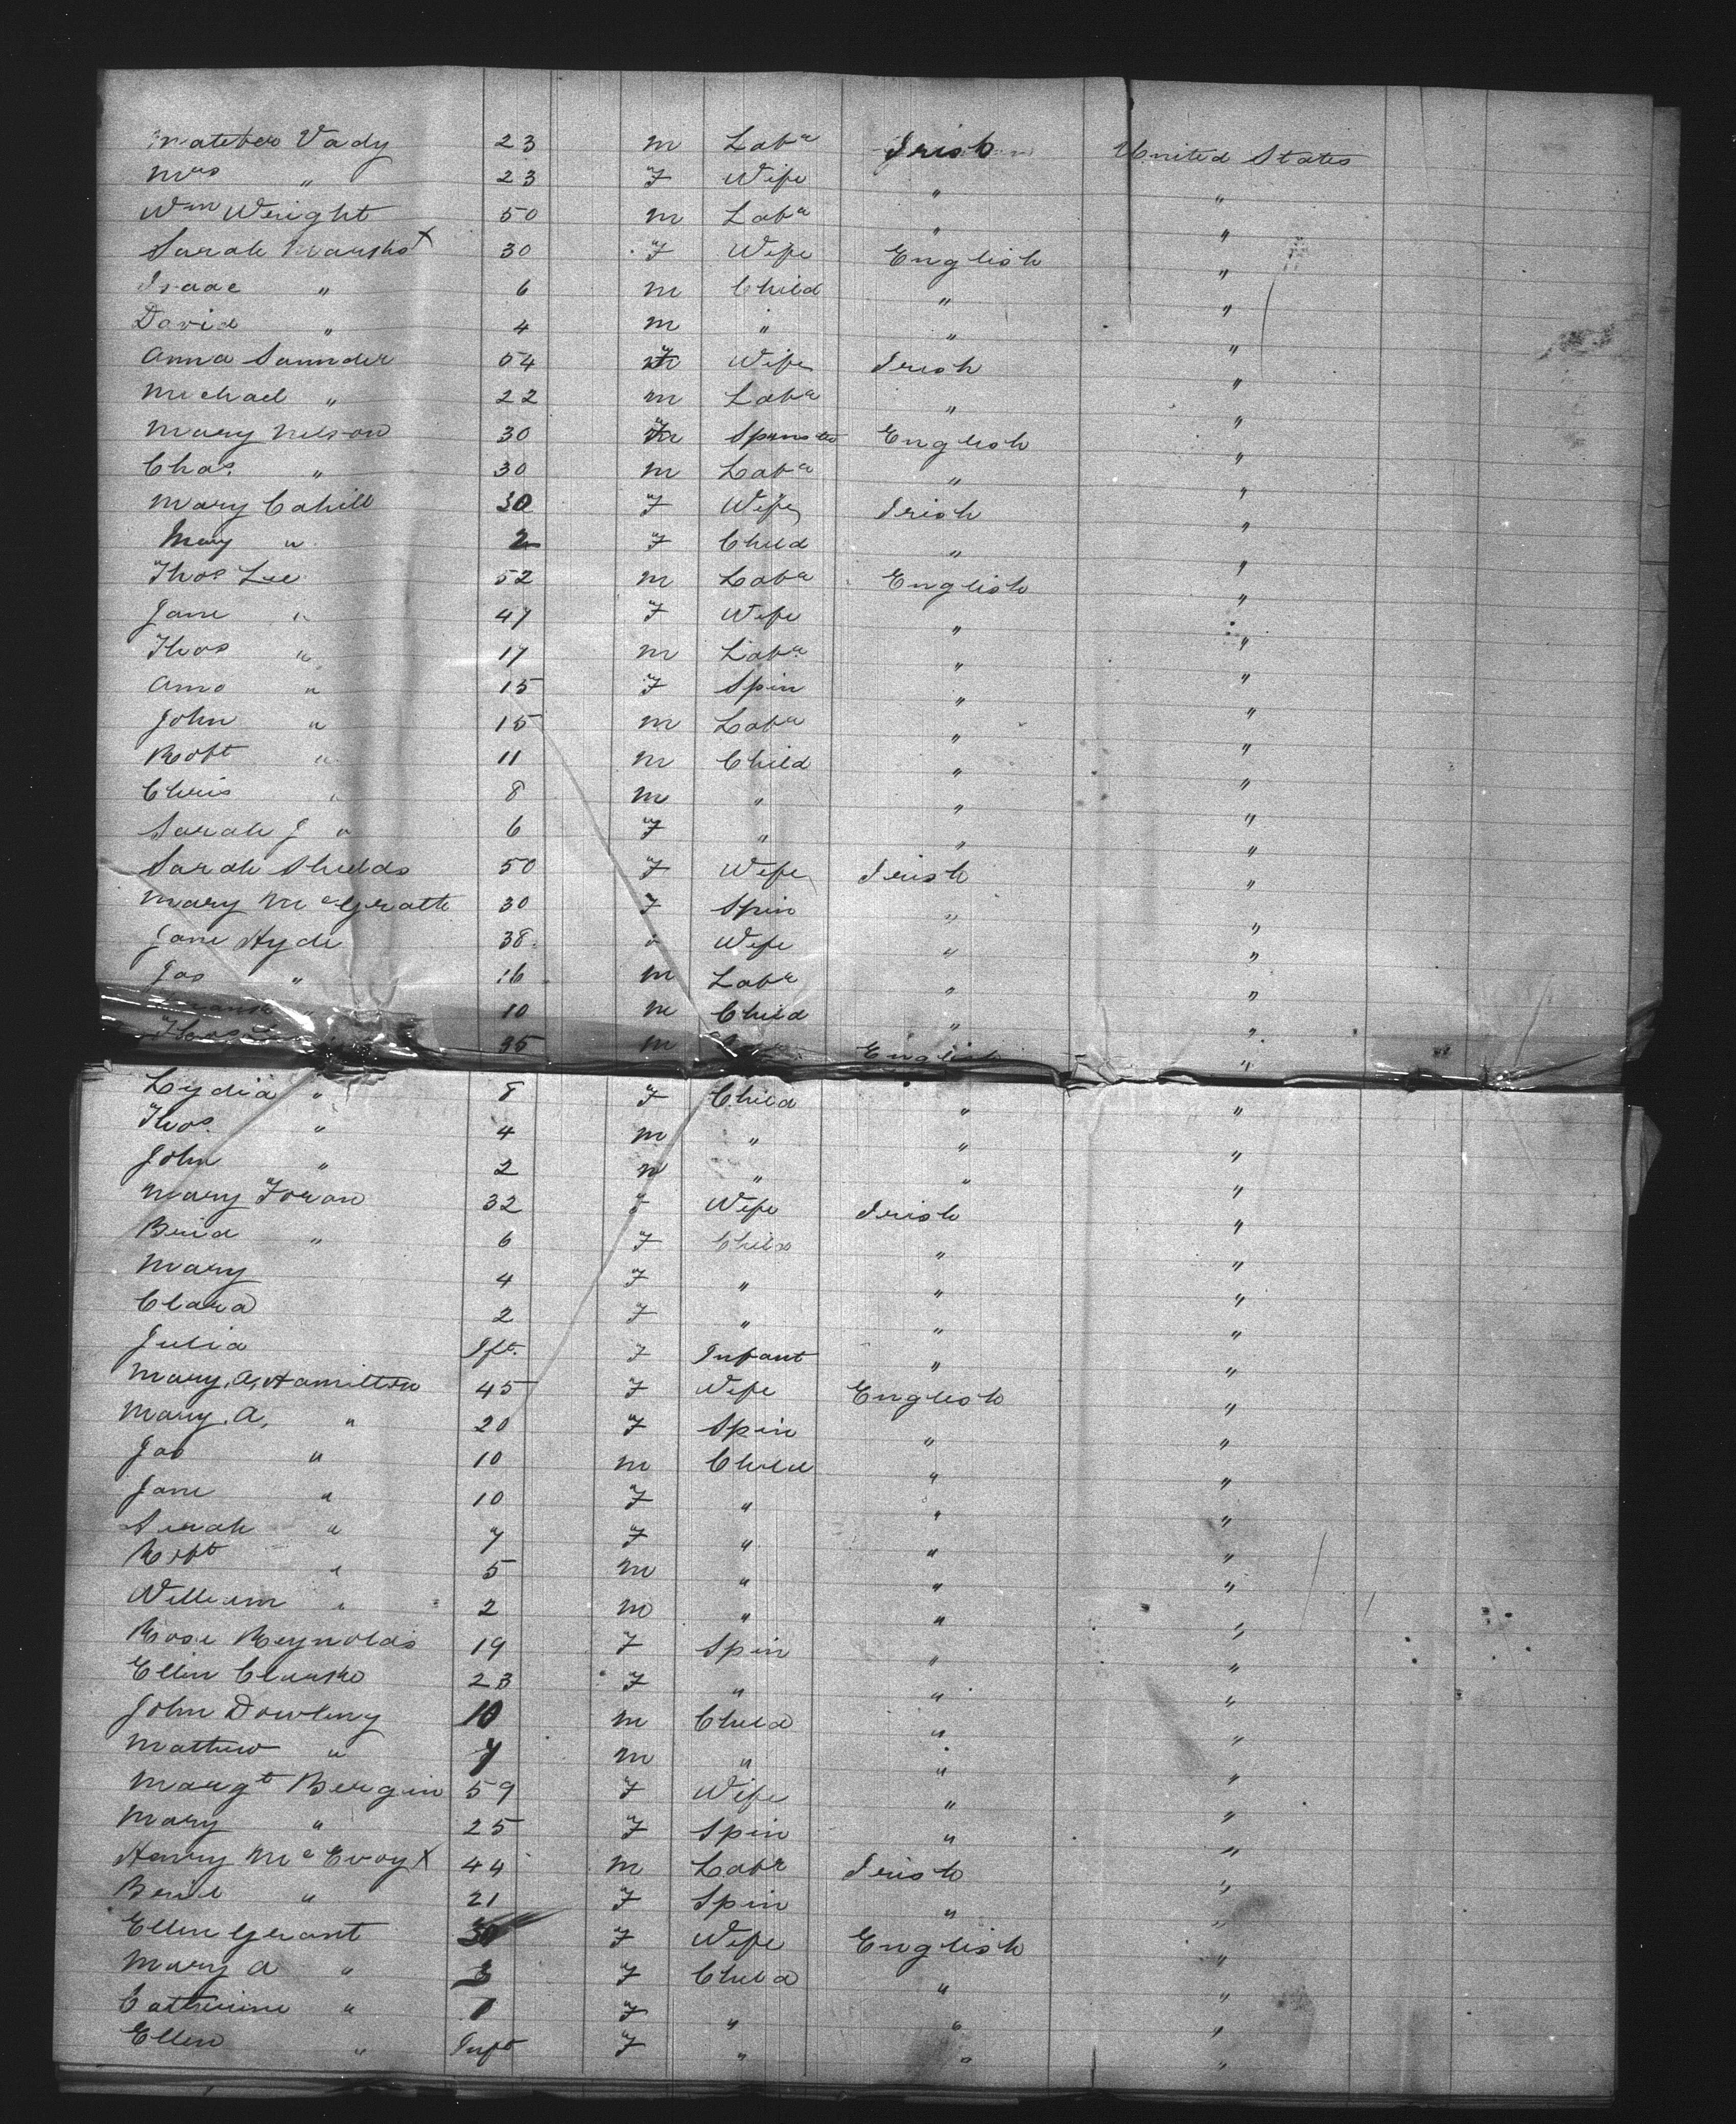 Vady 23 m Labr Irish United States
Mrs " 23 F Wife " "
Wm Wright 50 m Labr " "
Sarah x 30 F Wife English "
Isaac " 6 m Child " "
David " 4 m " " "
Anna Saunder 54 F Wife Irish "
Michael " 22 m Labr " "
Mary Nelson 30 F Spinster English "
Chas. " 30 m Labr " "
Mary Cahill 30 F Wife Irish "
Mary " 2 F Child " "
Thos Lee 52 m Labr English "
Jane " 47 F Wife " "
Thos " 17 m Labr " "
Ann " 15 F Spin " "
John " 15 m Labr " "
Robt " 11 m Child " "
Chris " 8 m " " "
Sarah J " 6 F " " "
Sarah Shields 50 F Wife Irish "
Mary McGrath 30 F Spin " "
Jane Hyde 38 " Wife " "
Jas " 16 m Labr " "
" 10 m Child " "
Thos 35 m English "
Lydia " 8 F Child " "
Thos. " 4 m " " "
John " 2 m " " "
Mary Foran 32 F Wife Irish "
Brid " 6 F Child " "
Mary 4 F " " "
Clara 2 F " " "
Julia Ift. F Infant " "
Mary. A. Hamilton 45 F Wife English "
Mary. A. " 20 F Spin " "
Jas " 10 m Child " "
Jane " 10 F " " "
Sarah " 7 F " " "
Robt " 5 m " " "
William " 2 m " " "
Rose Reynolds 19 F Spin " "
Ellen 23 F " " "
John Dowling 10 m Child " "
Mathew " 7 m " " "
Margt Bergin 59 F Wife " "
Mary " 25 F Spin " "
Henry McEvoy x 44 m Labr Irish "
" 21 F Spin " "
Ellen Grant 30 F Wife English "
Mary A " 3 F Child " "
Catherine " 1 F " " "
Ellen " Inft F " " "